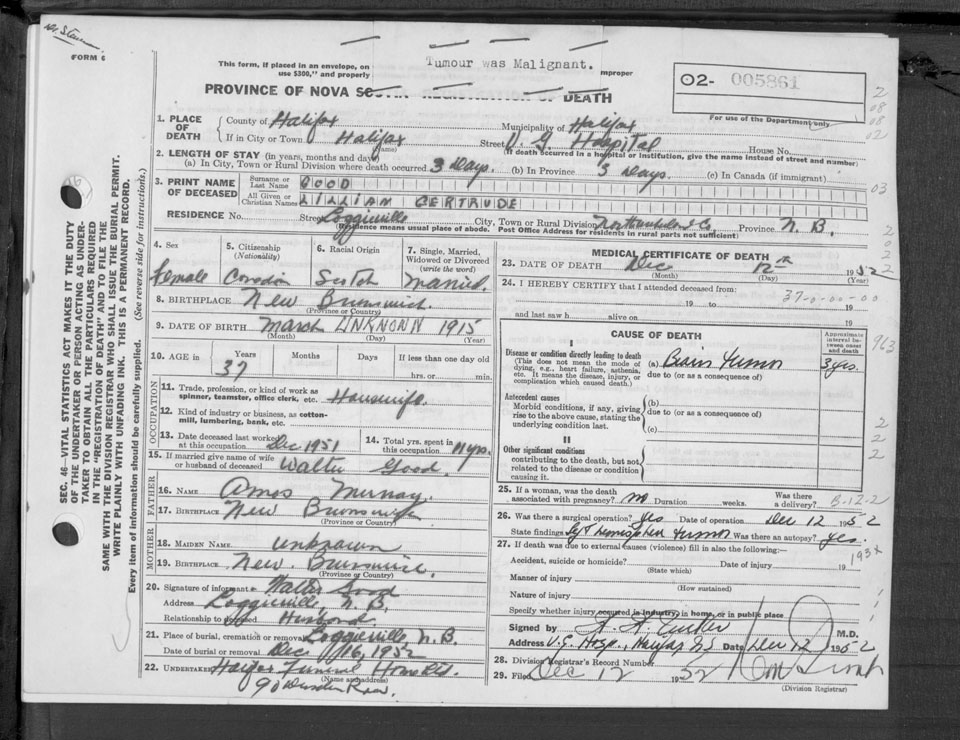 FORM 6
This form, if placed in an envelope, on
use $300," and properly
Tumour was Malignant.
improper
PROVINCE OF NOVA SCOTIA REGISTRATION OF DEATH
O2- 005861
For use of the Department only
1. PLACE OF DEATH
County of Halifax Municipality of Halifax
If in City or Town Halifax Street V. G. Hospital House No.
(Name) (If death occurred in a hospital or institution, give the name instead of street and number)
2. LENGTH OF STAY (in years, months and days)
(a) In City, Town or Rural Division where death occurred 3 Days. (b) In Province 3 Days. (c) In Canada (if immigrant)
3. PRINT NAME OF DECEASED
Surname or Last Name GOOD
All Given or Christian Names LILLIAN GERTRUDE
RESIDENCE No. Street Loggieville City, Town or Rural Division Northumberland Co. Province N. B.
(Residence means usual place of abode. Post Office Address for residents in rural parts not sufficient)
4. Sex Female
5. Citizenship (Nationality) Canadian
6. Racial Origin Scotch
7. Single, Married, Widowed or Divorced (write the word) Married.
8. BIRTHPLACE New Brunswick
(Province or Country)
9. DATE OF BIRTH March UNKNONN 1915
(Month) (Day) (Year)
10. AGE in Years 37 Months Days If less than one day old
hrs. or min.
OCCUPATION
11. Trade, profession, or kind of work as spinner, teamster, office clerk, etc. Housewife.
12. Kind of industry or business, as cotton-mill, lumbering, bank, etc.
13. Date deceased last worked at this occupation Dec 1951
14. Total yrs. spent in this occupation 11 yrs.
15. If married give name of wife or husband of deceased Walter Good
FATHER
16. NAME Amos Murray.
17. BIRTHPLACE New Brunswick
(Province or Country)
MOTHER
18. MAIDEN NAME unknown
19. BIRTHPLACE New Brunswick.
(Province or Country)
20. Signature of informant Walter Good
Address Loggieville, N. B.
Relationship to Husband
21. Place of burial, cremation or removal Loggieville, N.B.
Date of burial or removal Dec 16, 1952
22. Undertaker Funeral Home Ltd.
(Name and address)
90
MEDICAL CERTIFICATE OF DEATH
23. DATE OF DEATH Dec 12th 1952
(Month) (Day) (Year)
24. I HEREBY CERTIFY that I attended deceased from:
19 to 19
and last saw h alive on 19
CAUSE OF DEATH
Approximate interval between onset and death
I
Disease or condition directly leading to death
(This does not mean the mode of dying, e.g., heart failure, asthenia, etc. It means the disease, injury, or complication which caused death.)
(a) Brain Tumor 3 yrs.
due to (or as a consequence of)
Antecedent causes
Morbid conditions, if any, giving rise to the above cause, stating the underlying condition last.
(b)
due to (or as a consequence of)
(c)
II
Other significant conditions
contributing to the death, but not related to the disease or condition causing it.
25. If a woman, was the death associated with pregnancy? Duration weeks. Was there a delivery?
B-12-2
26. Was there a surgical operation? yes Date of operation Dec 12 1952
State findings hemisphere tumor Was there an autopsy? yes.
27. If death was due to external causes (violence) fill in also the following:—
Accident, suicide or homicide? Date of injury 19
(State which)
Manner of injury
(How sustained)
Nature of injury
Specify whether injury occurred in industry, in home, or in public place
Signed by M.D.
Address V.G. Hosp., Halifax NS Date Dec 12 1952
28. Division Registrar's Record Number
29. Filed Dec 12 1952
(Division Registrar)
SEC. 46—VITAL STATISTICS ACT MAKES IT THE DUTY
OF THE UNDERTAKER OR PERSON ACTING AS UNDER-
TAKER TO OBTAIN ALL THE PARTICULARS REQUIRED
IN THE "REGISTRATION OF DEATH" AND TO FILE THE
SAME WITH THE DIVISION REGISTRAR WHO SHALL ISSUE THE BURIAL PERMIT.
WRITE PLAINLY WITH UNFADING INK. THIS IS A PERMANENT RECORD.
Every item of information should be carefully supplied. (See reverse side for instructions.)
2
08
08
02
03
963